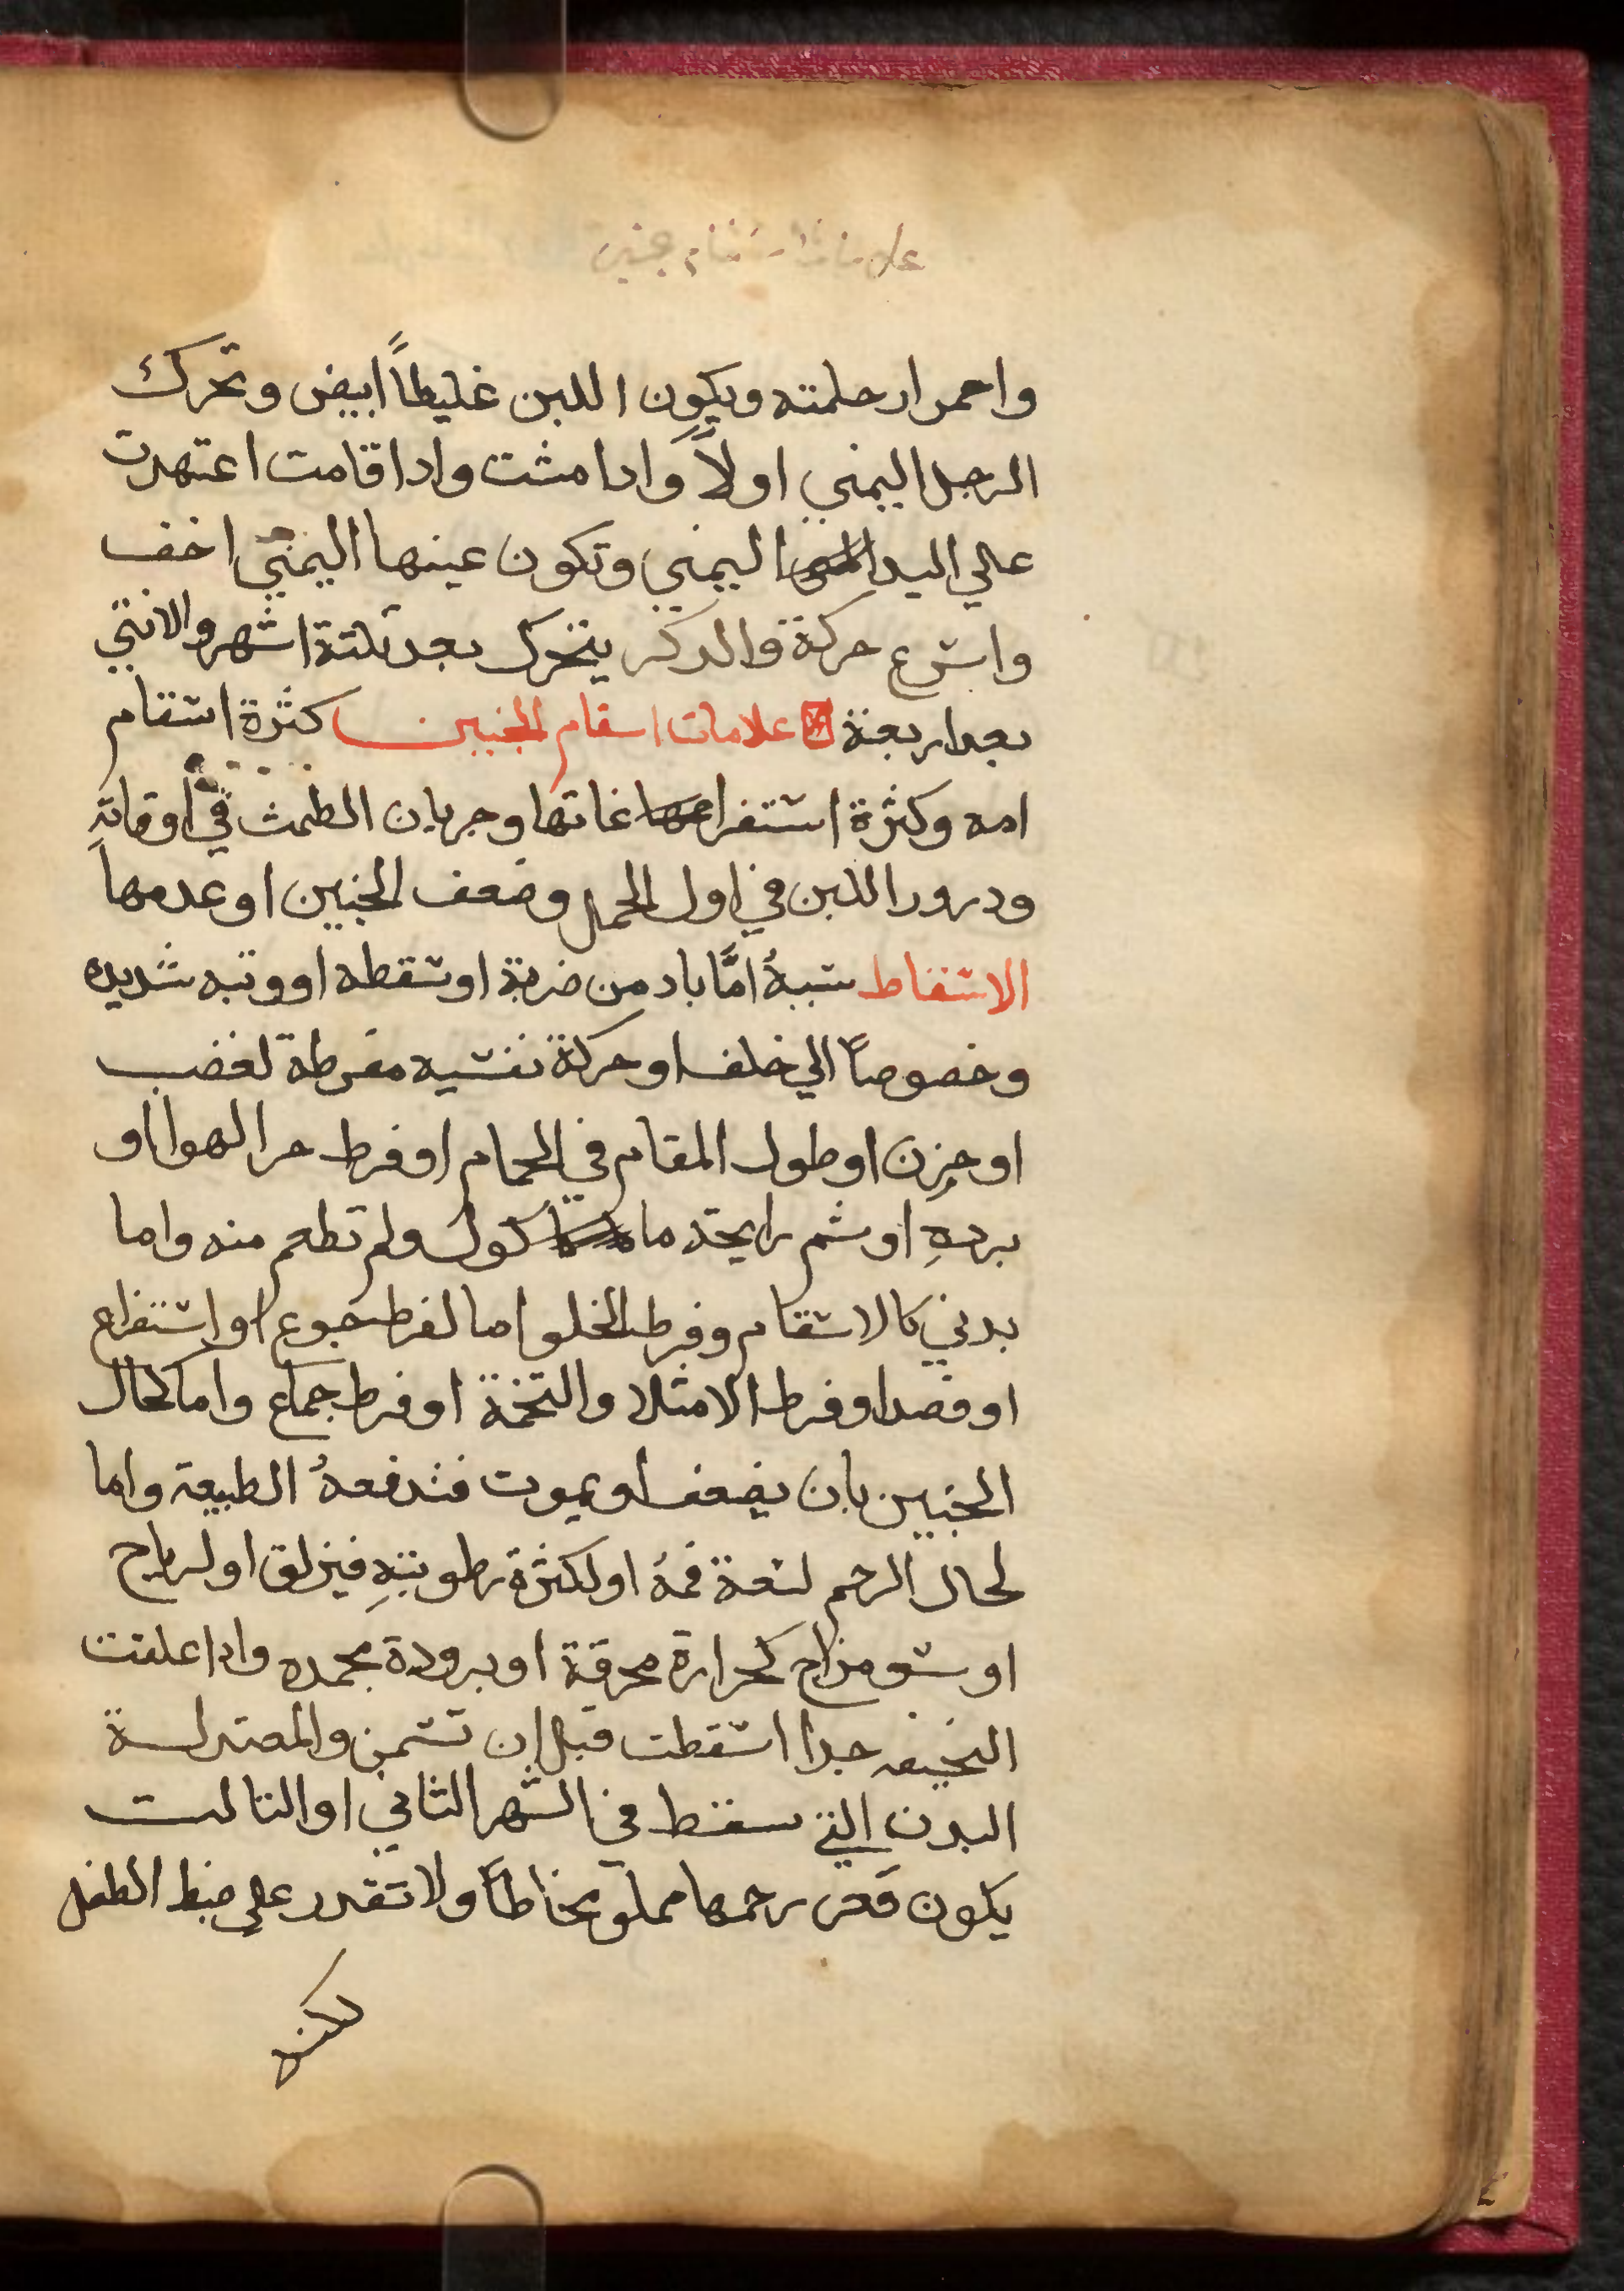 علامات اسقام جنين
واحمرار حلمته ويكون اللبن غليطاً ابيض وتحرك
الرجل اليمني اولاً وادا مشت وادا قامت اعتهدت
علي اليد اليمني وتكون عينها اليمنّي اخف
واسرع حركة والدكر يتحرك بعد تلتة اشهر والانتي
بعد اربعة علامات اسقام الجنين كثرة اسقام
امه وكثرة استفراغاتها وجريان الطمث في اوقاتهِ
ودرور اللبن في اول الحمل وضعف الجنين او عدمها
الاسقاط سببهُ امَّا باد من ضربة او سقطه او وتبه شديده
وخصوصاً الي خلف او حركة نفسيه مفرطة لغضب
او حزن او طول المقام في الحمام او فرط حر الهوا او
بردهِ او شم رايحة ماكول ولم تطعم منه واما
بدني كالاسقام وفرط الخلو اما لفرط جوع او استفراغ
او فصد او فرط الامتلا والتخمة او فرط جماع واما لحال
الجنين بان يضعف او يموت فتدفعهُ الطبيعة واما
لحال الرحم لسعة فمهُ او لكثرة رطوبتهِ فيزلق او لرياح
او سو مزاج كحرارة محرقة او برودة مجمده وادا علقت
النحيفه جدا اسقطت قبل ان تسمن والمعتدلة
البدن التي تسقط في الشهر الثاني او التالت
يكون قعر رحمها مملو مخاطاً ولا تقدر علي ضبط الطفل
لكنه